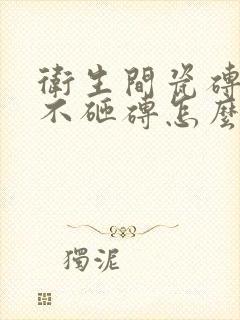 衛生間瓷磚
不砸磚怎麼
獨泥